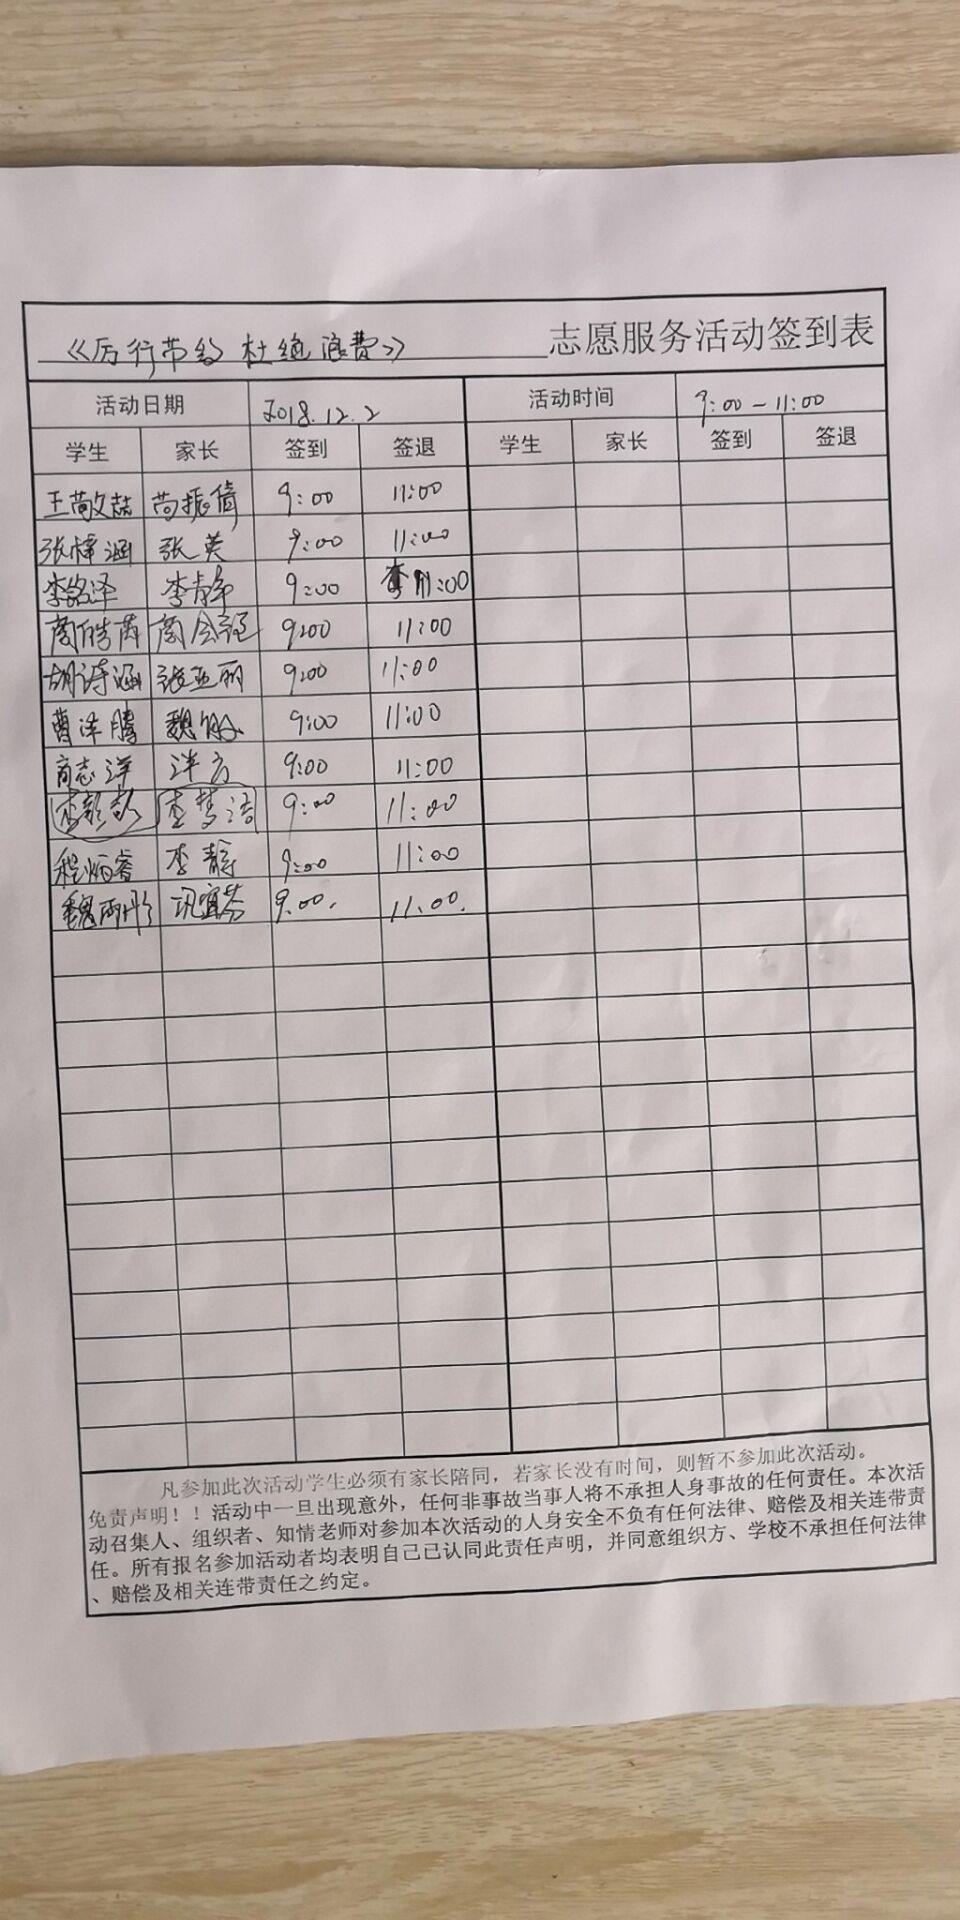 《厉行节约 杜绝浪费》 志愿服务活动签到表
活动日期 2018.12.2 活动时间 9:00-11:00
学生 家长 签到 签退 学生 家长 签到 签退
王敬喆 尚振倩 9:00 11:00
张梓涵 张英 9:00 11:00
李铭泽 李静 9:00 11:00
9:00 11:00
胡诗涵 张亚丽 9:00 11:00
曹泽腾 魏 9:00 11:00
商志洋 9:00 11:00
李 李梦洁 9:00 11:00
程炳睿 李静 9:00 11:00
魏雨彤 巩宜芬 9:00. 11:00.
凡参加此次活动学生必须有家长陪同，若家长没有时间，则暂不参加此次活动。
免责声明！！活动中一旦出现意外，任何非事故当事人将不承担人身事故的任何责任。本次活
动召集人、组织者、知情老师对参加本次活动的人身安全不负有任何法律、赔偿及相关连带责
任。所有报名参加活动者均表明自己已认同此责任声明，并同意组织方、学校不承担任何法律
、赔偿及相关连带责任之约定。